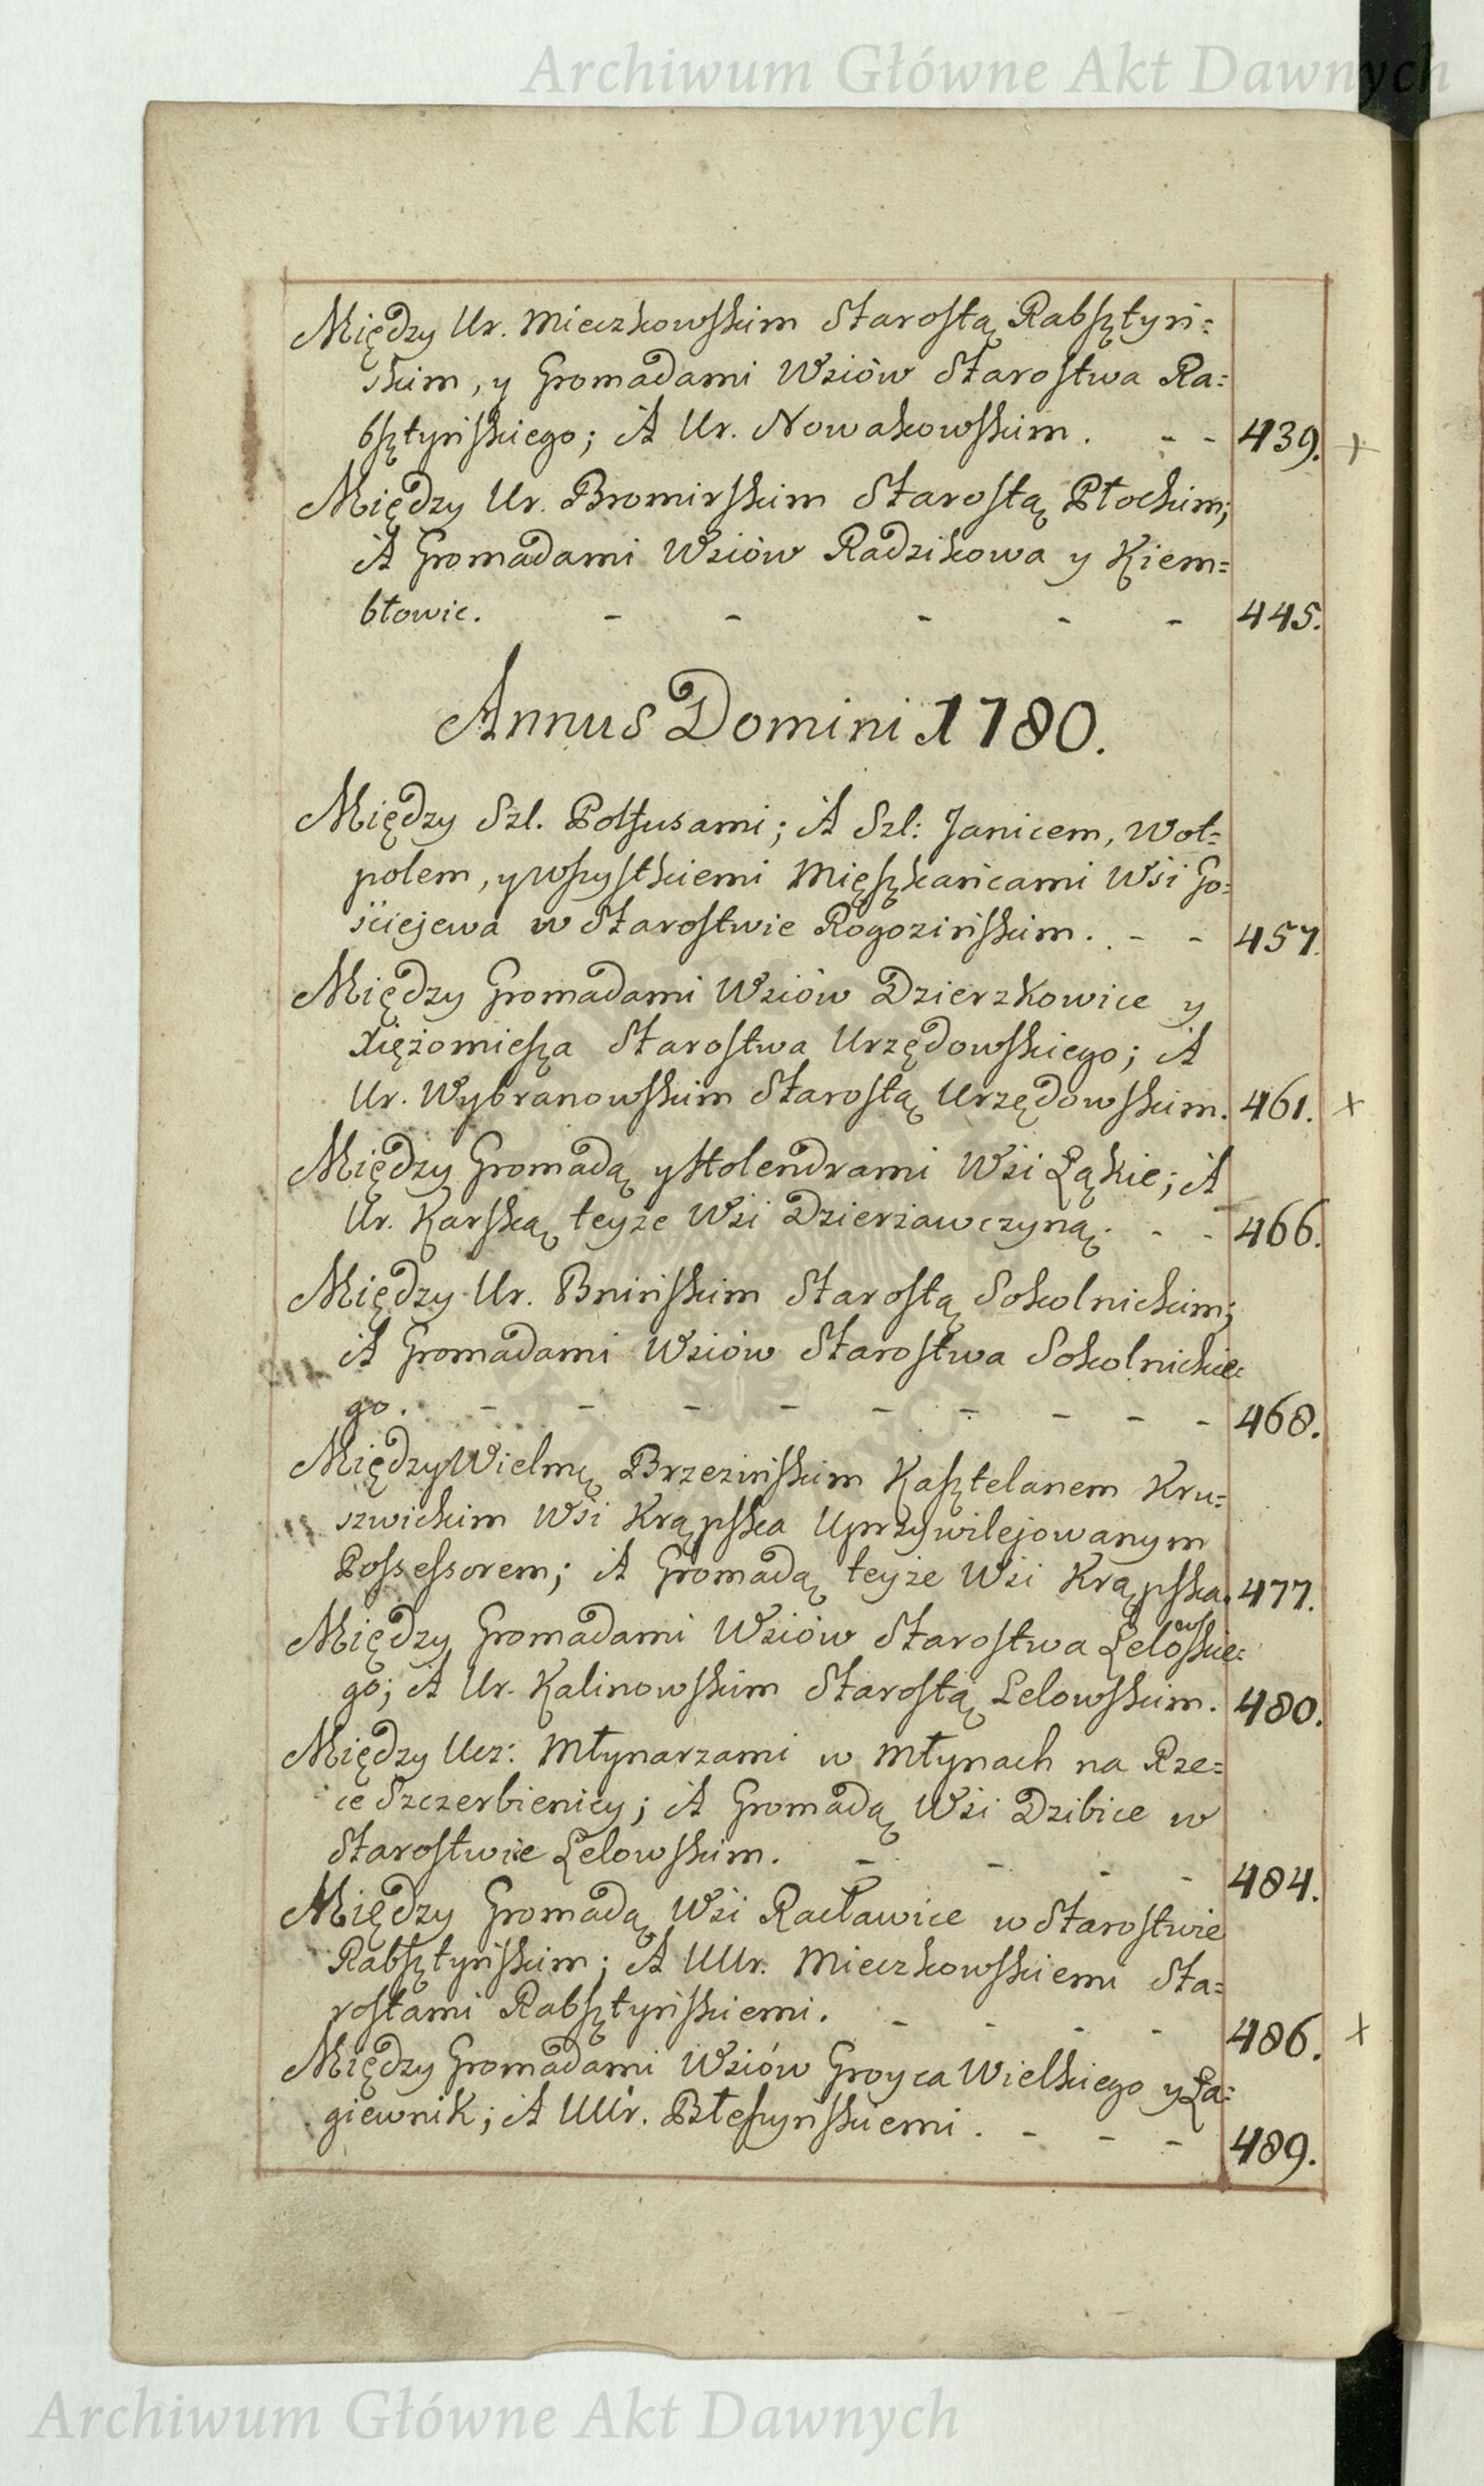 Archiwum Główne Akt Dawnych
Między Ur. Mieczkowskim Starostą Rabsztyń=
skim, y Gromadami Wsiów Starostwa Ra=
bsztyńskiego; A Ur. Nowakowskim. - - 439. +
Między Ur. Bromirskim Starostą Płockim;
A Gromadami Wsiów Radzikowa y Kiem=
błowic. - - - - - 445.
Annus Domini 1780.
Między Szl. Polfusami; A Szl: Janicem, Wol=
polem, y wszystkiemi Mięszkańcami Wsi Go=
ściejewa w Starostwie Rogozińskim. - - 457.
Między Gromadami Wsiów Dzierzkowice y
Xiężomiesza Starostwa Urzędowskiego; A
Ur. Wybranowskim Starostą Urzędowskim. 461. x
Między Gromadą y Holendrami Wsi Łąkie; A
Ur. Karską teyże Wsi Dzierżawczyną. - - 466.
Między Ur. Bnińskim Starostą Sokolnickim;
A Gromadami Wsiów Starostwa Sokolnickie=
go. - - - - - - - - - 468.
Między Wielmą Brzezińskim Kasztelanem Kru=
szwickim Wsi Krąpska Uprzywilejowanym
Possessorem; A Gromadą teyże Wsi Krąpska. 477.
Między Gromadami Wsiów Starostwa Lelowskie=
go; A Ur. Kalinowskim Starostą Lelowskim. 480.
Między Ucz: Młynarzami w Młynach na Rze=
ce Szczerbienicy; A Gromadą Wsi Dzibice w
Starostwie Lelowskim. - - - - 484.
Między Gromadą Wsi Racławice w Starostwie
Rabsztyńskim; A UUr. Mieczkowskiemi Sta=
rostami Rabsztyńskiemi. - - - - 486. x
Między Gromadami Wsiów Groyca Wielkiego y Ła=
giewnik; A UUr. Błeszyńskiemi. - - - 489.
Archiwum Główne Akt Dawnych